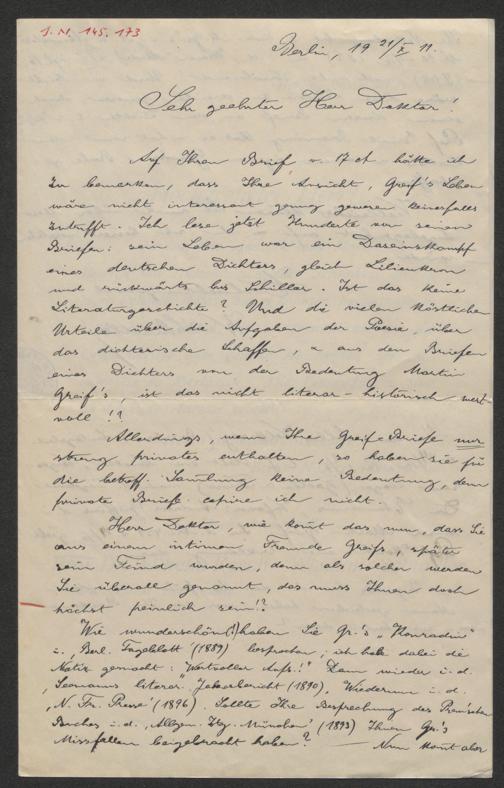 J. N. 145.173
Berlin, 19 21/X 11.
Sehr geehrter Herr Doktor!
Auf Ihren Brief v. 17 ct hätte ich
zu bemerken, dass Ihre Ansicht, Greif's Leben
wäre nicht interessant genug gewesen keinesfalls
zutrifft. Ich lese jetzt Hunderte von seinen
Briefen: sein Leben war ein Daseinskampf
eines deutschen Dichters, gleich Liliencron
und rückwärts bis Schiller. Ist das keine
Literaturgeschichte? Und die vielen köstlichen
Urteile über die Aufgaben der Poesie, über
das dichterische Schaffen, aus den Briefen
eines Dichters von der Bedeutung Martin
Greif's, ist das nicht literar-historisch wert-
voll!?
Allerdings, wenn Ihre Greif-Briefe nur
streng privates enthalten, so haben sie für
die betreff. Samlung keine Bedeutung, denn
private Briefe copire ich nicht.
Herr Doktor, wie komt das nun, dass Sie
aus einem intimen Freunde Greifs, später
sein Feind wurden, denn als solcher werden
Sie überall genannt, das muss Ihnen doch
höchst peinlich sein!?
Wie wunderschön(!) haben Sie Gr.'s "Konradin"
i. "Berl. Tageblatt" (1889) besprochen; ich hab dabei die
Notiz gemacht: "Wertvoller Aufs.!" Dann wieder i. d.
literar. Jahresbericht (1890), Wiederum i. d.
"N. Fr. Presse" (1896). Sollte Ihre Besprechung des Prem'schen
Buches i. d. "Allgem. Ztg. München" (1893) Ihnen Gr.'s
Missfallen beigebracht haben? — Nun komt aber